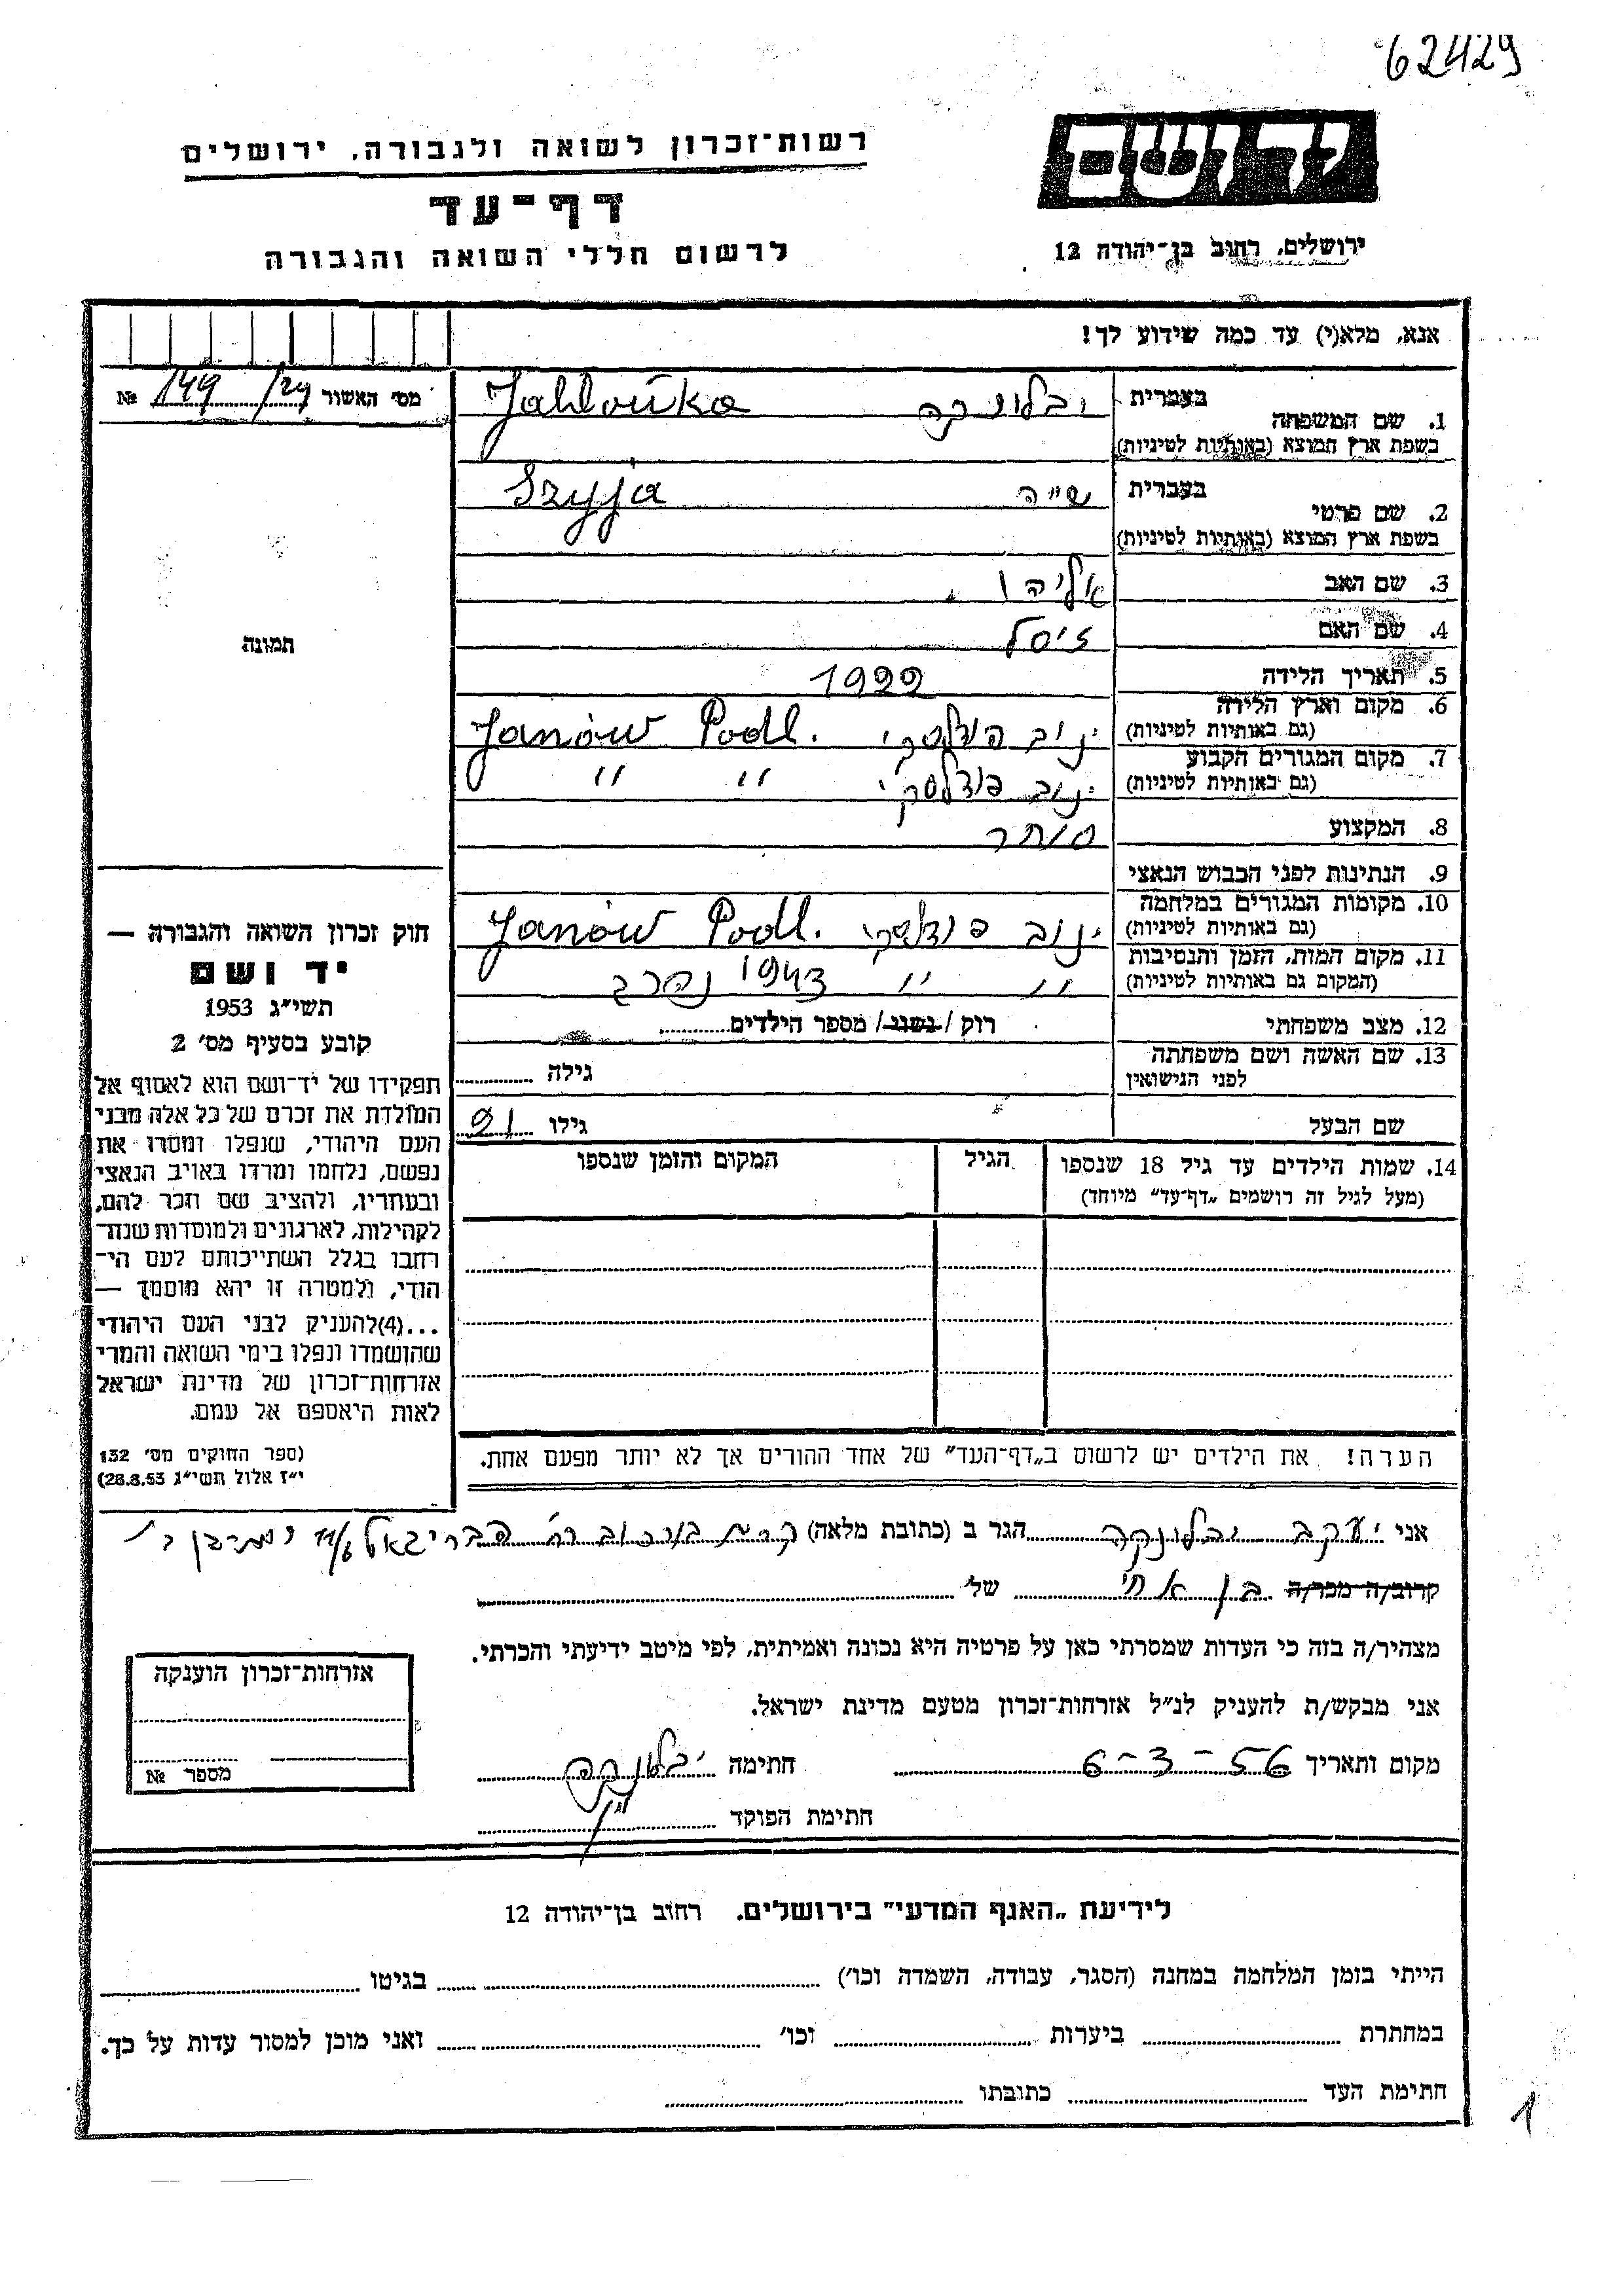 62429
רשות־זכרון לשואה ולגבורה, ירושלים
יד ושם
דף־עד
לרשום חללי השואה והגבורה
ירושלים, רחוב בן־יהודה 12
אנא, מלא(י) עד כמה שידוע לך!
מס׳ האשור 149/29 №
בעברית יבלונקה Jabłońka
1. שם המשפחה
בשפת ארץ המוצא (באותיות לטיניות)
בעברית שייה Szyja
2. שם פרטי
בשפת ארץ המוצא (באותיות לטיניות)
3. שם האב אליהו
4. שם האם זיסל
5. תאריך הלידה 1922
6. מקום וארץ הלידה
(גם באותיות לטיניות) ינוב פודלסקי Janów Podl.
7. מקום המגורים הקבוע
(גם באותיות לטיניות) ינוב פודלסקי " "
8. המקצוע סוחר
9. הנתינות לפני הכבוש הנאצי
10. מקומות המגורים במלחמה
(גם באותיות לטיניות) ינוב פודלסקי Janów Podl.
11. מקום המות, הזמן והנסיבות
(המקום גם באותיות לטיניות) " " 1943 נהרג
12. מצב משפחתי רוק / נשוי / מספר הילדים
13. שם האשה ושם משפחתה
לפני הנישואין גילה
שם הבעל גילו 21
14. שמות הילדים עד גיל 18 שנספו הגיל המקום והזמן שנספו
(מעל לגיל זה רושמים „דף־עד״ מיוחד)
הערה! את הילדים יש לרשום ב„דף־העד״ של אחד ההורים אך לא יותר מפעם אחת.
תמונה
חוק זכרון השואה והגבורה —
יד ושם
תשי״ג 1953
קובע בסעיף מס׳ 2
תפקידו של יד־ושם הוא לאסוף אל
המולדת את זכרם של כל אלה מבני
העם היהודי, שנפלו ומסרו את
נפשם, נלחמו ומרדו באויב הנאצי
ובעוזריו, ולהציב שם וזכר להם,
לקהילות, לארגונים ולמוסדות שנח־
רבו בגלל השתייכותם לעם הי־
הודי, ולמטרה זו יהא מוסמך —
...(4)להעניק לבני העם היהודי
שהושמדו ונפלו בימי השואה והמרי
אזרחות־זכרון של מדינת ישראל
לאות היאספם אל עמם.
(ספר החוקים מס׳ 132
י״ז אלול תשי״ג 28.8.53)
אני יעקב יבלונקה הגר ב (כתובת מלאה)
קרוב/ה מכר/ה בן אחי של
מצהיר/ה בזה כי העדות שמסרתי כאן על פרטיה היא נכונה ואמיתית, לפי מיטב ידיעתי והכרתי.
אני מבקש/ת להעניק לנ״ל אזרחות־זכרון מטעם מדינת ישראל.
מקום ותאריך 6-3-56 חתימה יבלונקה
חתימת הפוקד
אזרחות־זכרון הוענקה
מספר №
לידיעת „האגף המדעי״ בירושלים. רחוב בן־יהודה 12
הייתי בזמן המלחמה במחנה (הסגר, עבודה, השמדה וכו׳) בגיטו
במחתרת ביערות וכו׳ ואני מוכן למסור עדות על כך.
חתימת העד כתובתו
1